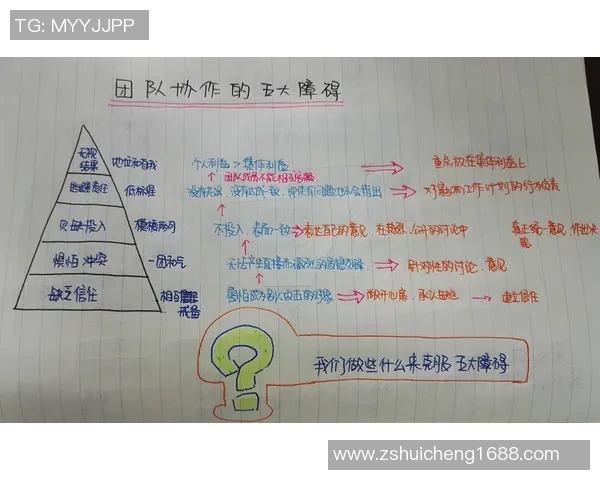 TG: MYYJJPP
团队协作的五大障碍
无视结果 地位和自我 个人利益 > 集体利益 重点放在集体利益上
团队成员不能相互
逃避责任 低标准 没有 没有 一致, 即使有问题也不会指出 对 工作计划的
欠缺投入 模棱两可 不投入, 表面一致 表达自己的意见, 在 公开的讨论中 真正统一意见, 作出决策
惧怕冲突 一团和气 无法产生直接而激烈的思想交锋 针对性的讨论, 意见
缺乏信任 相互 戒备 害怕成为别人攻击的对象 敞开心扉, 承认 建立信任
我们做些什么来克服五大障碍
www.zshuicheng1688.com